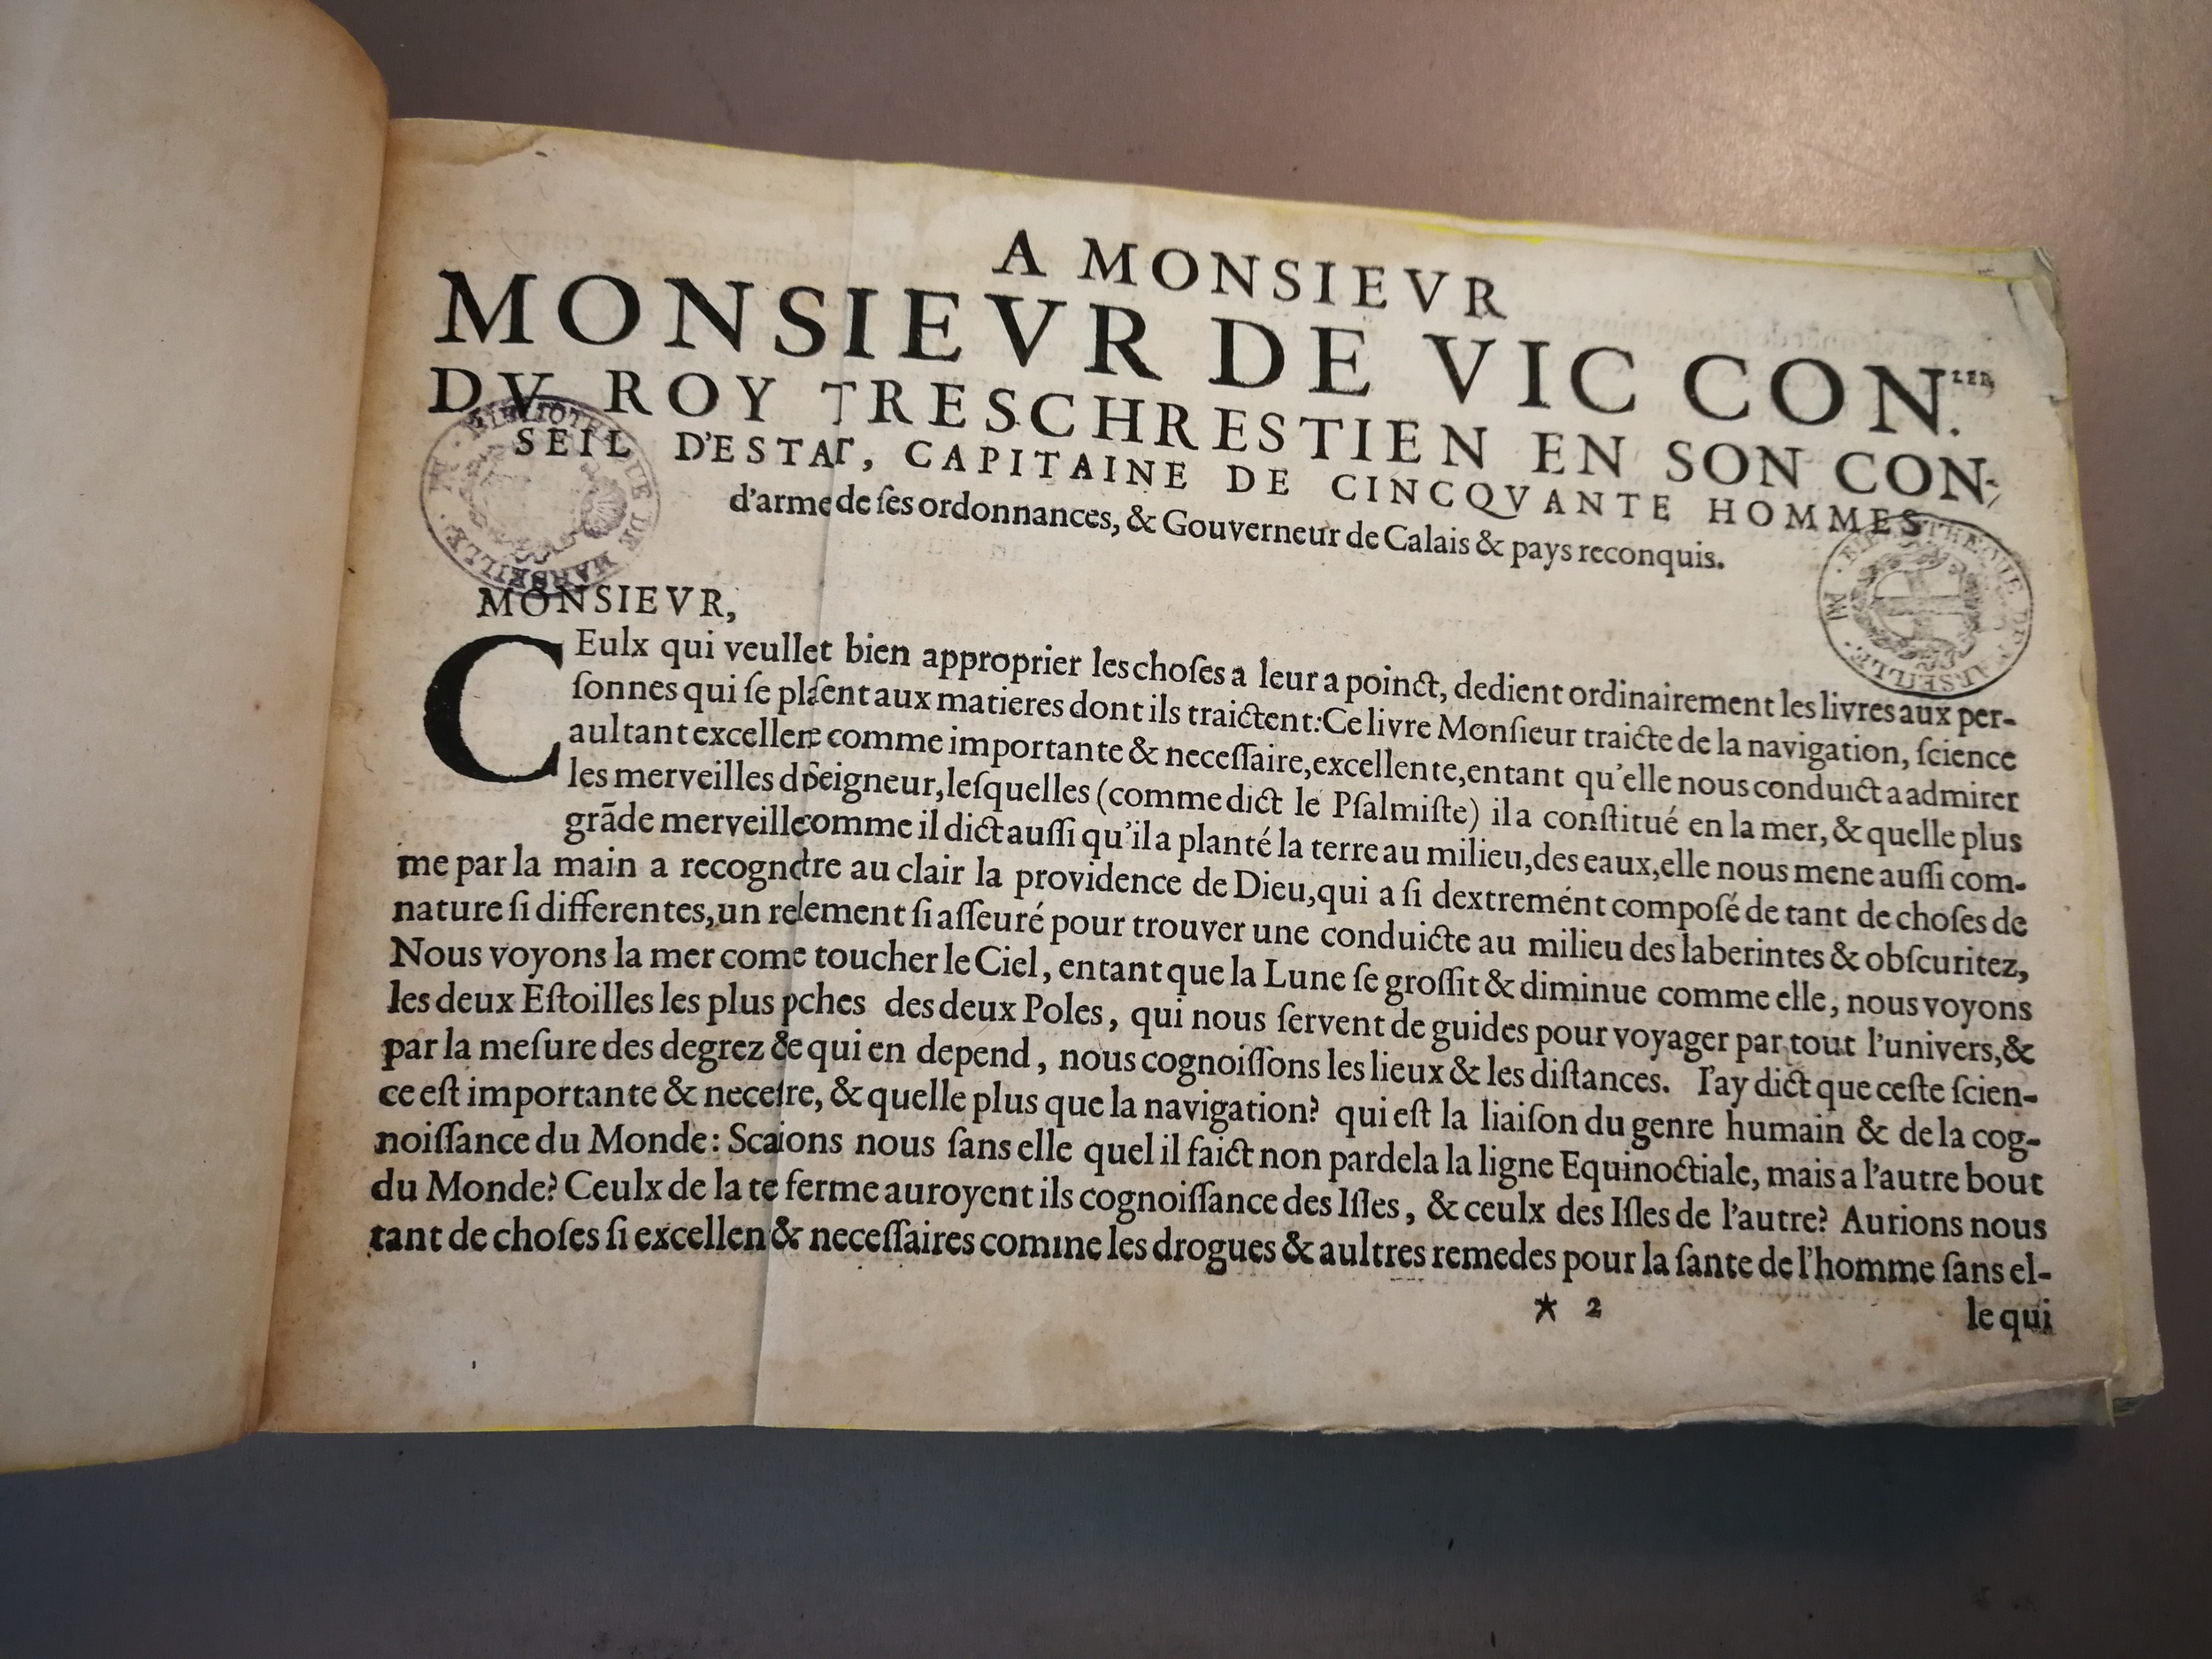 A MONSIEVR
MONSIEVR DE VIC CON.LER
DV ROY TRESCHRESTIEN EN SON CON-
SEIL D'ESTAT, CAPITAINE DE CINCQVANTE HOMMES
d'arme de ſes ordonnances, & Gouverneur de Calais & pays reconquis.
BIBLIOTHEQUE DE MARSEILLE
BIBLIOTHEQUE DE MARSEILLE
MONSIEVR,
CEulx qui veullet bien approprier les choſes a leur a poinct, dedient ordinairement les livres aux per-
ſonnes qui ſe aux matieres dont ils traictent: Ce livre Monſieur traicte de la navigation, ſcience
aultant comme importante & neceſſaire, excellente, entant qu'elle nous conduict a admirer
les merveilles Seigneur, leſquelles (comme dict le Pſalmiſte) il a conſtitué en la mer, & quelle plus
grãde merveille comme il dict auſſi qu'il a planté la terre au milieu, des eaux, elle nous mene auſſi com-
me par la main a au clair la providence de Dieu, qui a ſi dextremént compoſé de tant de choſes de
nature ſi differentes, un ſi aſſeuré pour trouver une conduicte au milieu des laberintes & obſcuritez,
Nous voyons la mer come toucher le Ciel, entant que la Lune ſe groſſit & diminue comme elle, nous voyons
les deux Eſtoilles les plus des deux Poles, qui nous ſervent de guides pour voyager par tout l'univers, &
par la meſure des degrez & qui en depend, nous cognoiſſons les lieux & les diſtances. I'ay dict que ceſte ſcien-
ce eſt importante & & quelle plus que la navigation? qui eſt la liaiſon du genre humain & de la cog-
noiſſance du Monde: nous ſans elle quel il faict non pardela la ligne Equinoctiale, mais a l'autre bout
du Monde? Ceulx de la ferme auroyent ils cognoiſſance des Iſles, & ceulx des Iſles de l'autre? Aurions nous
tant de choſes ſi & neceſſaires comme les drogues & aultres remedes pour la ſante de l'homme ſans el-
* 2
le qui